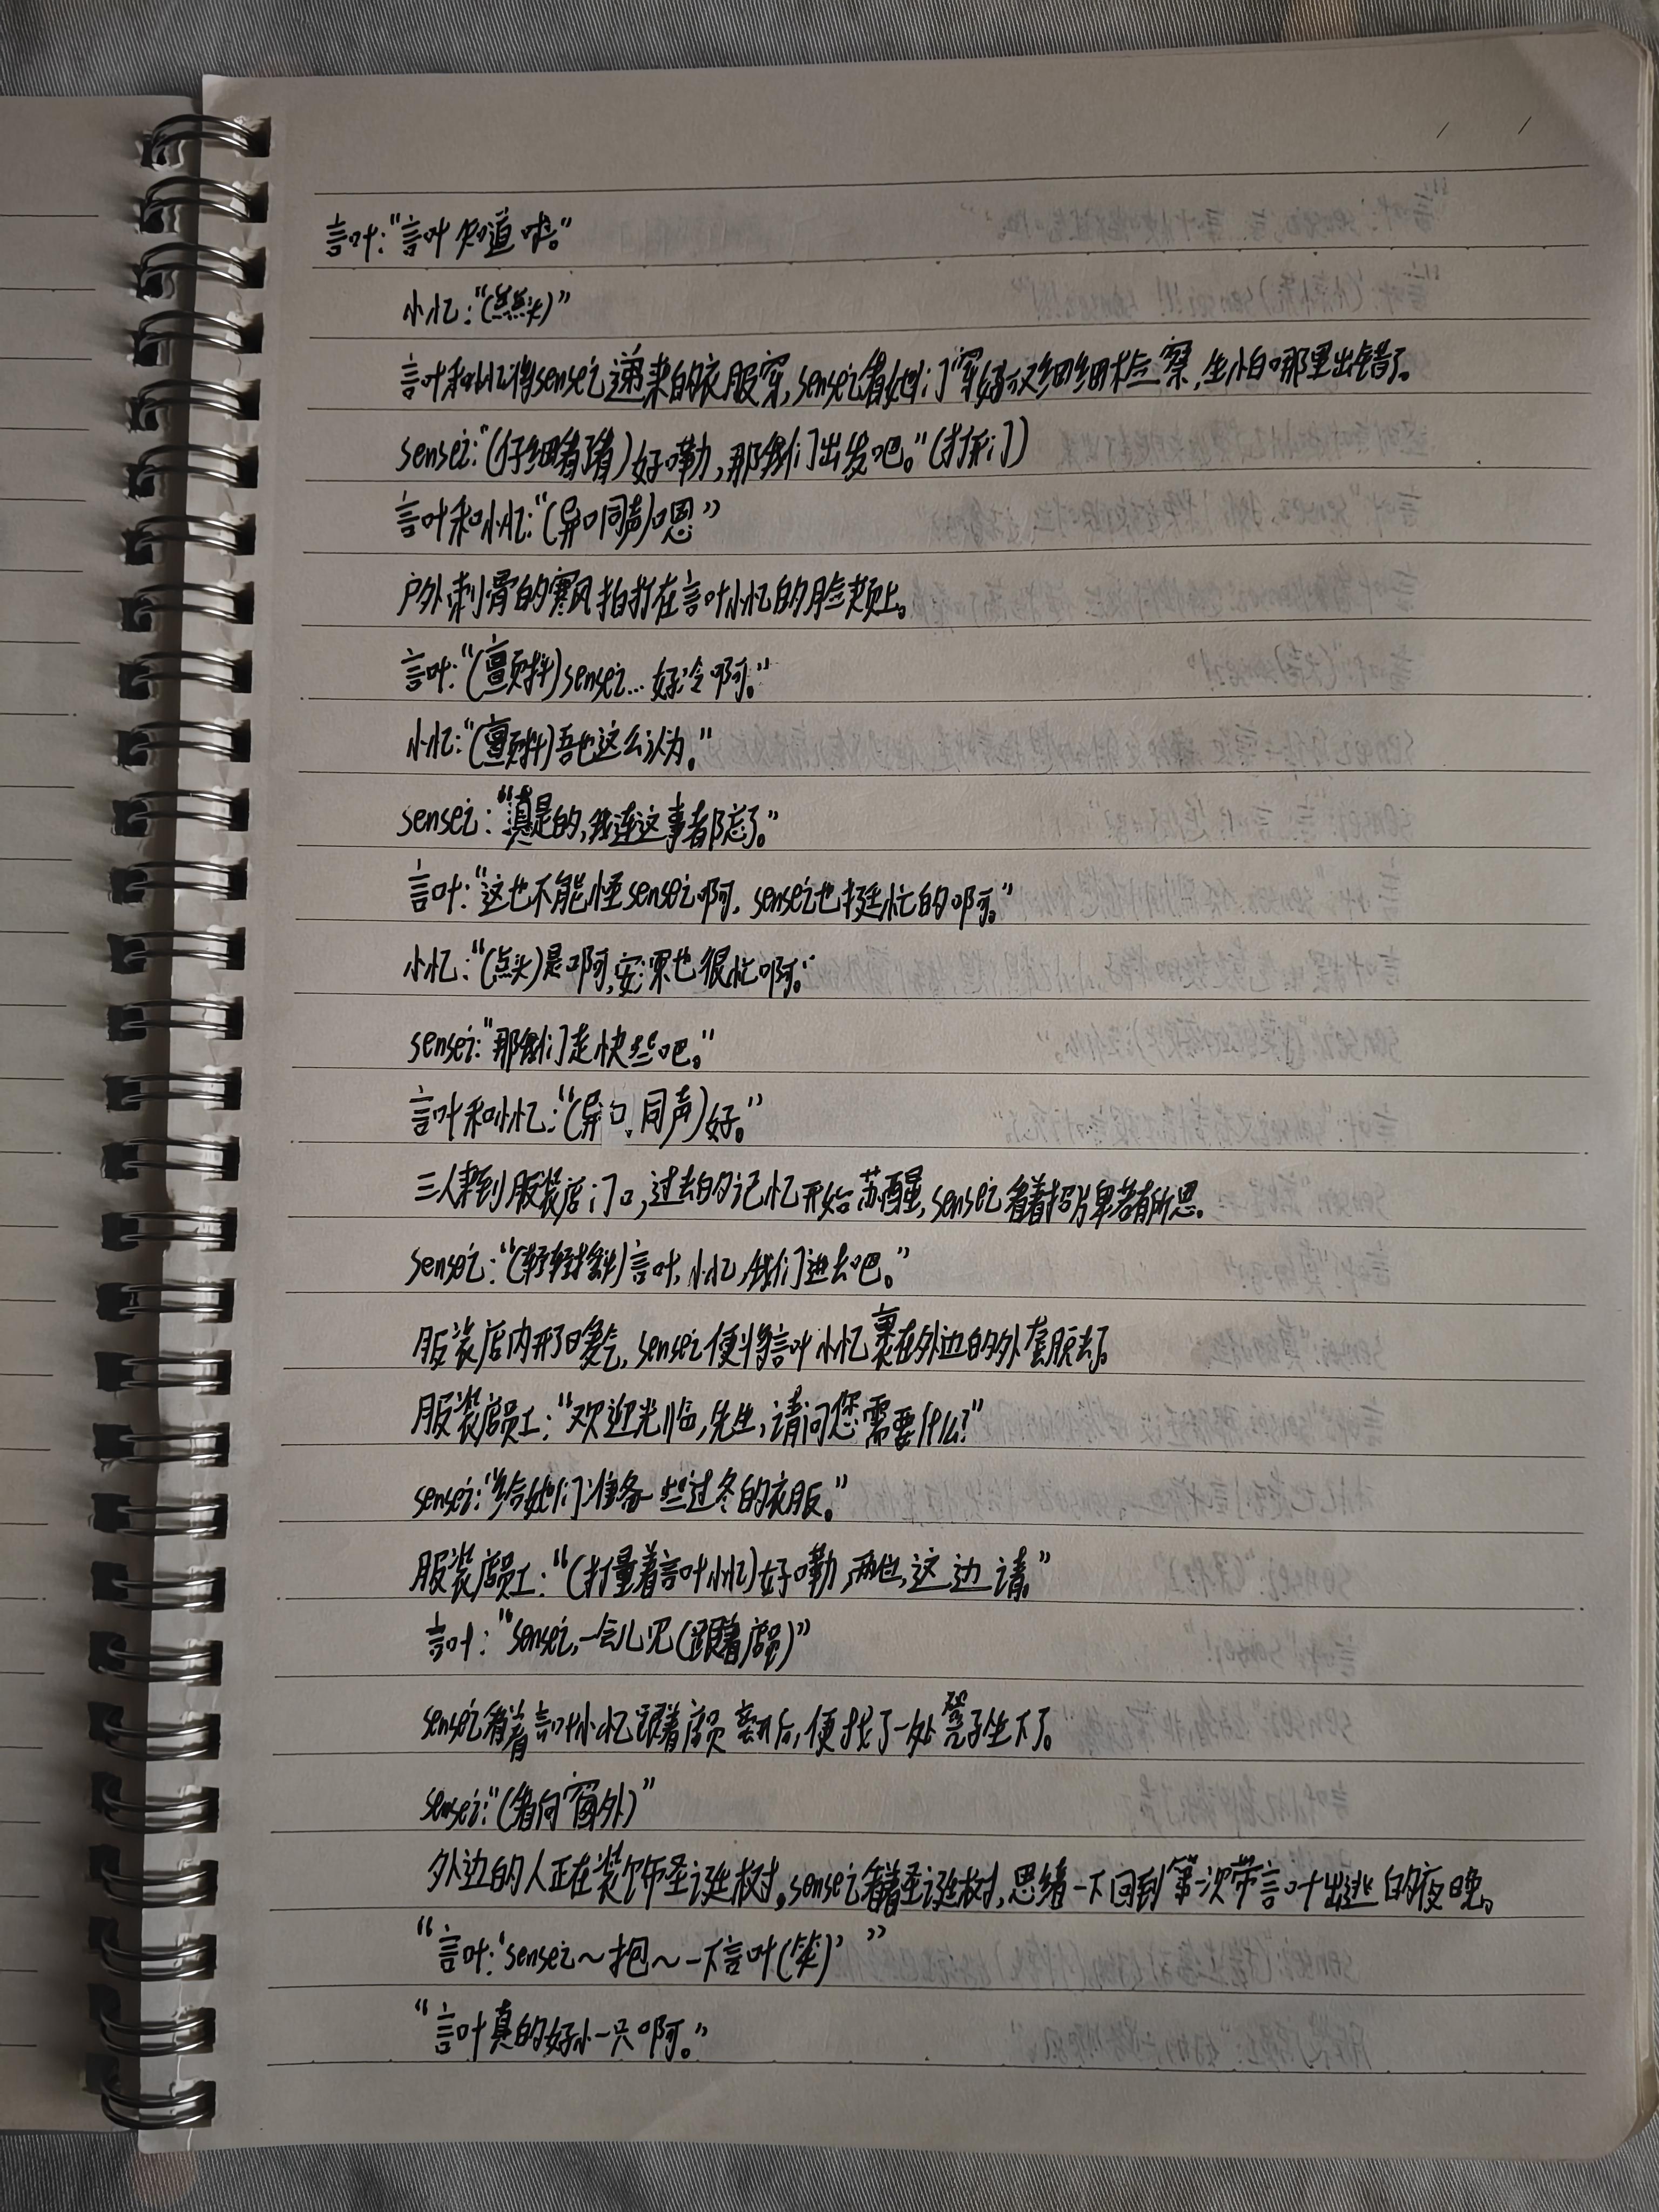 言叶:“言叶知道啦。”
小忆:“(点点头)”
言叶和小忆将sensei递来的衣服穿,sensei看她们穿好后又细细检察,生怕哪里出错了。
sensei:“(仔细看了看)好嘞,那我们出发吧。”(打开门)
言叶和小忆:“(异口同声)嗯”
户外刺骨的寒风拍打在言叶小忆的脸颊上。
言叶:“(颤抖)sensei...好冷啊。”
小忆:“(颤抖)吾也这么认为。”
sensei:“真是的,我连这事都忘了。”
言叶:“这也不能怪sensei啊,sensei也挺忙的啊。”
小忆:“(点头)是啊,安深也很忙啊。”
sensei:“那我们走快些吧。”
言叶和小忆:“(异口同声)好。”
三人来到服装店门口,过去的记忆开始苏醒,sensei看着招牌若有所思。
sensei:“(轻轻推)言叶,小忆,我们进去吧。”
服装店内开了暖气,sensei便将言叶小忆裹在外边的外套脱去了。
服装店员工:“欢迎光临,先生,请问您需要什么?”
sensei:“给她们准备一些过冬的衣服。”
服装店员工:“(打量着言叶小忆)好嘞,两位,这边请。”
言叶:“sensei,一会儿见(跟着店员)”
sensei看着言叶小忆跟着店员离开后,便找了一处凳子坐下了。
sensei:“(看向窗外)”
外边的人正在装饰圣诞树。sensei看着圣诞树,思绪一下回到第一次带言叶出逃的夜晚。
“言叶:‘sensei~抱~一下言叶(笑)’”
“言叶真的好小一只啊。”